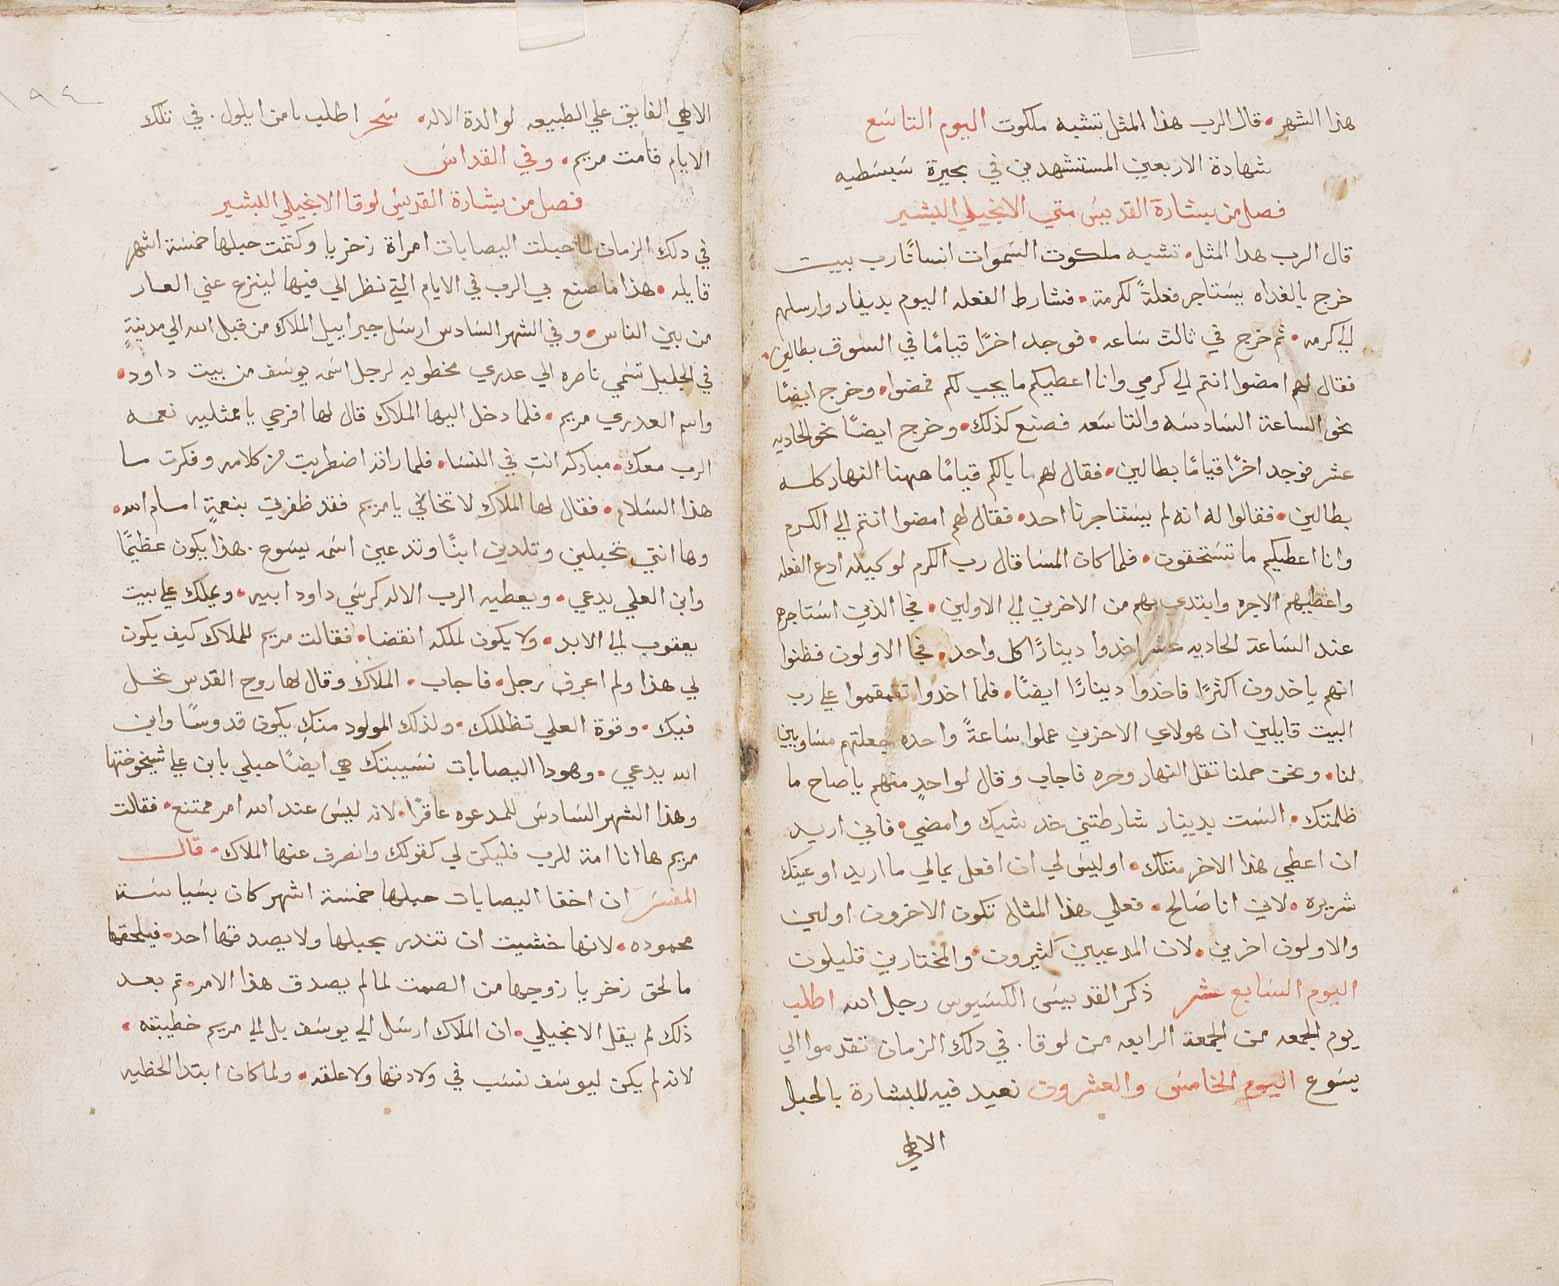 هذا الشهر • قال الرب هذا المثل تشبه ملكوت اليوم التاسع
شهادة الاربعين المستشهدين في بحيرة سبسطيه
فصل من بشارة القديس متي الانجيلي البشير
قال الرب هدا المثل • تشبه ملكوت السموات انسانًا رب بيت
خرج بالغداه يستاجر فعلةً لكرمة • فشارط الفعله اليوم بدينار وارسلهم
لي كرمه • ثم خرج في ثالث ساعه • فوجد اخرًا قيامًا في السوق بطالين •
فقال لهم امضوا انتم لي كرمي وانا اعطيكم ما يجب لكم فمضوا • وخرج ايضًا
نحو الساعة السادسه والتاسعه فصنع كذلك • وخرج ايضًا نحو الحاديه
عشر فوجد اخرًا قيامًا بطالين • فقال لهم ما بالكم قيامًا ههنا النهار كله
بطالين • فقالوا له انه لم يستاجرنا احد • فقال لهم امضوا انتم الي الكرم
وانا اعطيكم ما تستحقون • فلما كان المسا قال رب الكرم لوكيله ادع الفعله
واعطيهم الاجره وابتدي بهم من الاخرين الي الاولين • فجا الذين استاجرهم
عند الساعة الحاديه عشر اخدوا دينارًا كل واحد • فجا الاولون فظنوا
انهم ياخدون اكثرًا فاخذوا دينارًا ايضًا • فلما اخدوا تقمقموا علي رب
البيت قايلين ان هولاي الاخرين عملوا ساعةً واحده جعلتهم مساويين
لنا • ونحن حملنا ثقل النهار وحره فاجاب وقال لواحدٍ منهم ياصاح ما
ظلمتك • الست بدينار شارطتني خد شيك وامضي • فاني اريد
ان اعطي هذا الاخر مثلك • اوليس لي ان افعل بمالي ما اريد او عينك
شريره • لاني انا صالح • فعلي هذا المثال تكون الاخرون اولين
والاولون اخرين • لان المدعيين كثيرون • والمختارين قليلون
اليوم السابع عشر ذكر القديس الكسيوس رجل الله اطلب
يوم الجمعه من الجمعة الرابعه من لوقا . في دلك الزمان تقدموا الي
يسوع اليوم الخامس والعشرون نعيد فيه للبشارة بالحبل
الالهي
١٩٤
الالهي الفايق علي الطبيعه لوالدة الاله • سحر اطلب ثامن ايلول . في تلك
الايام قامت مريم • وفي القداس
فصل من بشارة القديس لوقا الانجيلي البشير
في دلك الزمان لما حبلت اليصابات امراة زخريا وكتمت حبلها خمسة اشهر
قايله • هذا ما صنع بي الرب في الايام التي نظر الي فيها لينزع عني العار
من بين الناس • وفي الشهر السادس ارسل جبراييل الملاك من قبل الله الي مدينةٍ
في الجليل تسمي ناصره الي عدري مخطوبه لرجل اسمه يوسف من بيت داود •
واسم العدري مريم • فلما دخل اليها الملاك قال لها افرحي يا ممتليه نعمه
الرب معك • مباركه انتِ في النسا • فلما راته اضطربت من كلامه وفكرت ما
هذا السلام • فقال لها الملاك لا تخافي يا مريم فقد ظفرتي بنعمةٍ امام الله •
وها انتي تحبلين وتلدين ابنًا وتدعين اسمه يسوع . هذا يكون عظيمًا
وابن العلي يدعي • ويعطيه الرب الاله كرسي داود ابيه • ويملك علي بيت
يعقوب لي الابد • ولا يكون لملكه انقضا • فقالت مريم للملاك كيف يكون
لي هذا ولم اعرف رجل • فاجاب • الملاك وقال لها روح القدس تحل
فيك • وقوة العلي تظللك • ولذلك المولود منكِ يكون قدوسًا وابن
الله يدعي • وهودا اليصابات نسيبتك هي ايضًا حبلي بابن علي شيخوختها
وهذا الشهر السادس للمدعوه عاقرًا • لانه ليس عند الله امر ممتنع • فقالت
مريم ها انا امة للرب فليكن لي كقولك وانصرف عنها الملاك • قال
المفسر ان اخفا اليصابات حبلها خمسة اشهر كان بسياسة
محموده • لانها خشيت ان تندر بحبلها ولا يصدقها احد • فيلحقها
ما لحق زخريا زوجها من الصمت لما لم يصدق هذا الامر • ثم بعد
ذلك لم يقل الانجيلي • ان الملاك ارسل الي يوسف بل لي مريم خطيبته •
لانه لم يكن ليوسف نسب في ولادتها ولا علقه • ولما كان ابتدا الخطيه